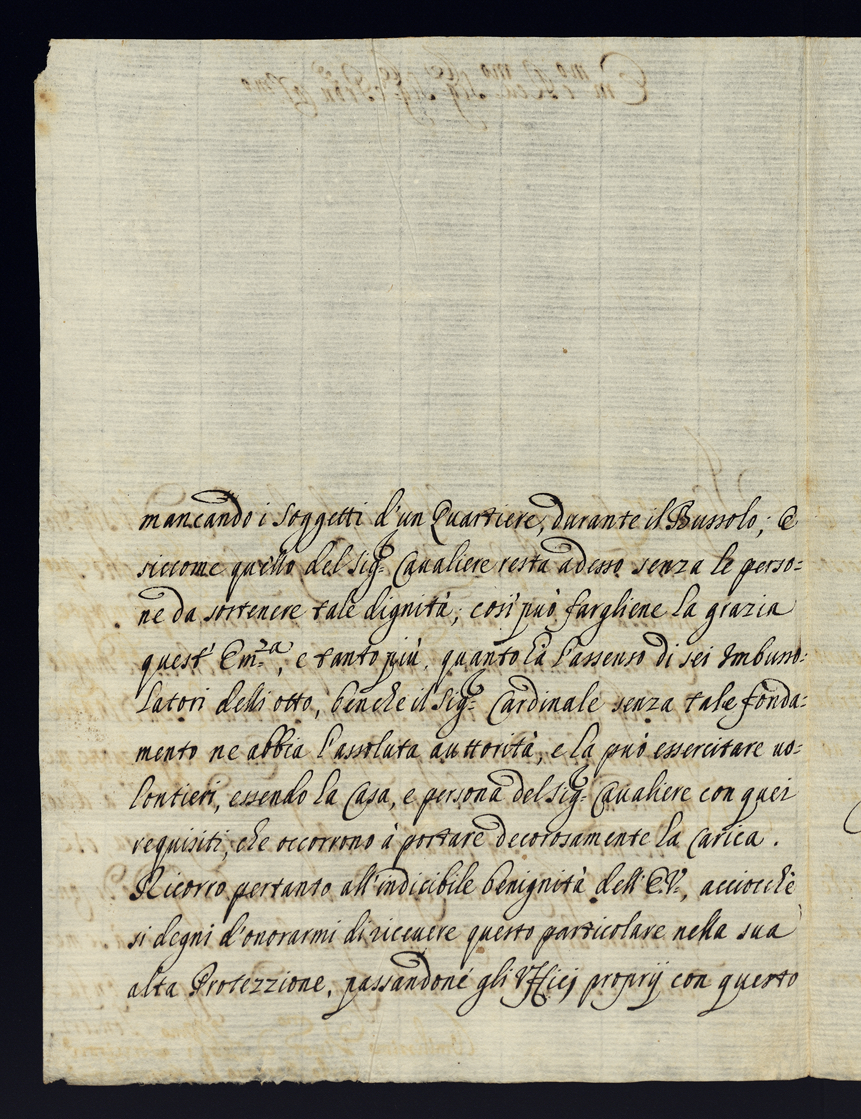 mancando i Soggetti d'un Quartiere, durante il Bussolo; E
siccome quello del Sig.r Cavaliere resta adesso senza le perso=
ne da sostenere tale dignità; così può fargliene la grazia
quest' Em.za, e tanto più, quanto là l'assenso di sei Imbusso=
latori delli otto, benche il Sig.r Cardinale senza tale fonda=
mento ne abbia l'assoluta auttorità, e la può essercitare uo=
lontieri, essendo la Casa, e persona del Sig.r Caualiere con quei
requisiti, che occorrono à portare decorosamente la Carica.
Ricorro pertanto all'indicibile benignità dell'E.V., acciocchè
si degni d'onorarmi di riceuere questo particolare nella sua
alta Protezzione, passandone gli Vfficj proprij con questo